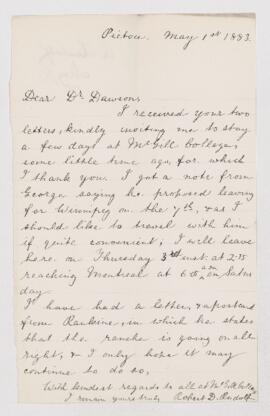 Pictou. May 1st 1883.
Dear Dr. Dawson,
I received your two
letters, kindly inviting me to stay
a few days at McGill College,
some little time ago, for which
I thank you. I got a note from
George saying he proposed leaving
for Winnipeg on the 7th, & as I
should like to travel with him
if quite convenient, I will leave
here on Thursday 3rd inst. at 2.15
reaching Montreal at 6 am on Satur
day.
I have had a letter, & a postcard
from Rankine, in which he states
that the ranche is going on all
right, & I only hope it may
continue to do so.
With kindest regards to all at McGill College
I remain yours truly Robert D.